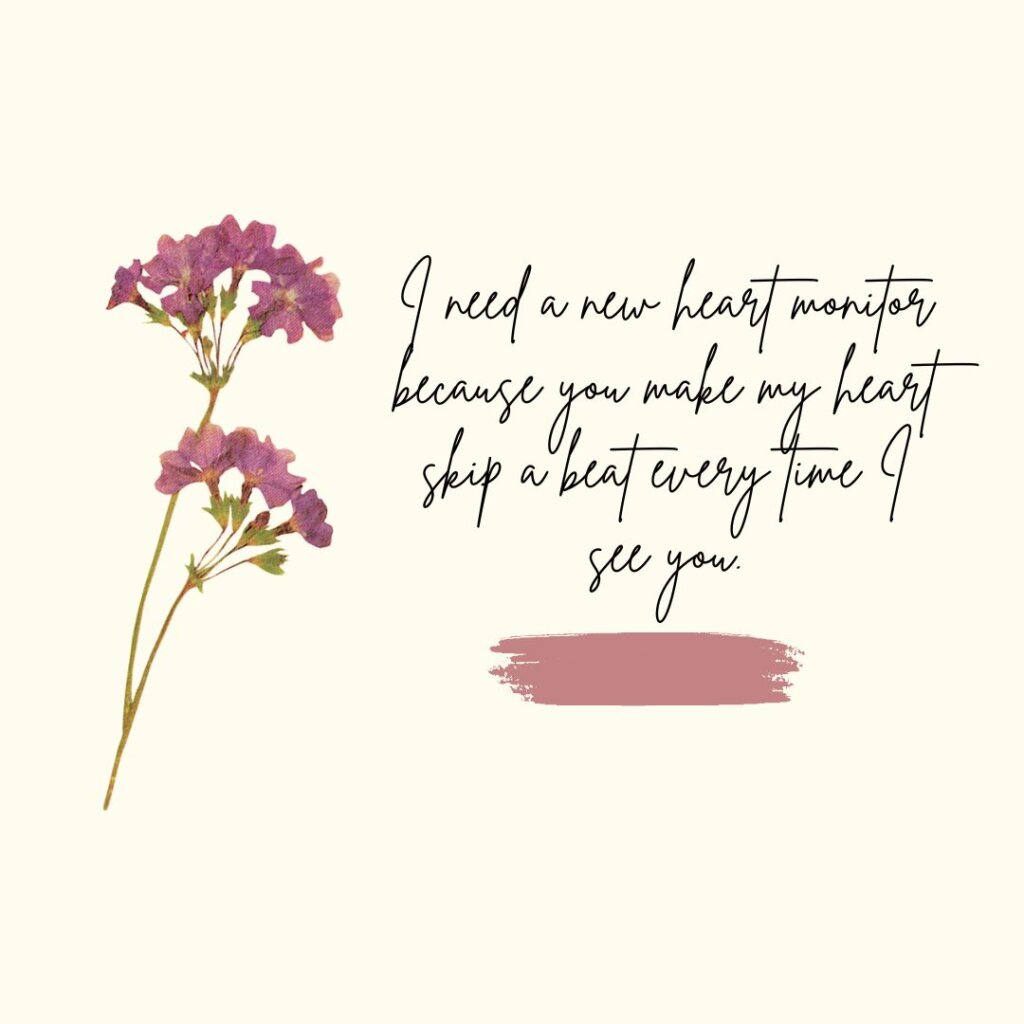 I need a new heart monitor
because you make my heart
skip a beat every time I
see you.